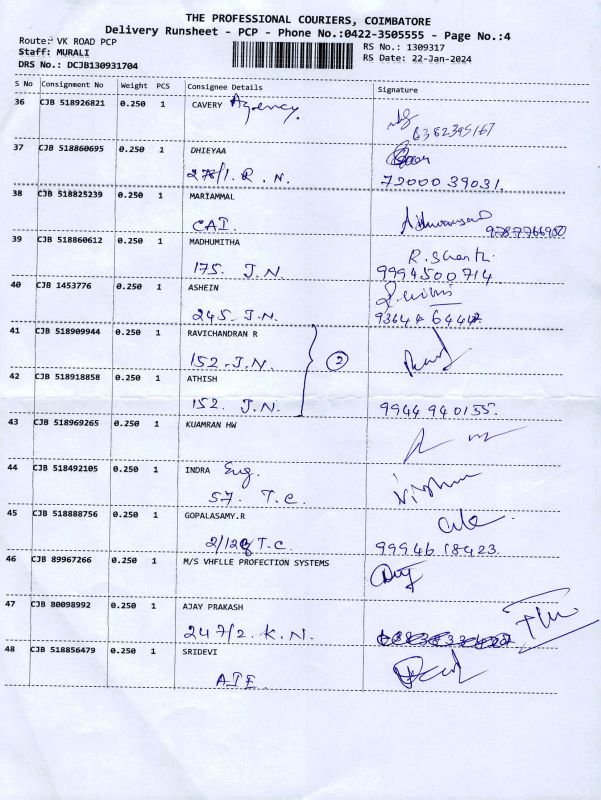 THE PROFESSIONAL COURIERS, COIMBATORE
Delivery Runsheet - PCP - Phone No.:0422-3505555 - Page No.:4
Route: VK ROAD PCP
RS No.: 1309317
Staff: MURALI
RS Date: 22-Jan-2024
DRS No.: DCJB130931704
S No Consignment No Weight PCS Consignee Details Signature
36 CJB 518926821 0.250 1 CAVERY Agency.
6382395167
37 CJB 518860695 0.250 1 DHIEYAA
278/1. R. N. 72000 39031.
38 CJB 518825239 0.250 1 MARIAMMAL
CAI. 9787766900
39 CJB 518860612 0.250 1 MADHUMITHA R. Shanthi
175. J.N. 9994500714
40 CJB 1453776 0.250 1 ASHEIN
245. J.N.
41 CJB 518909944 0.250 1 RAVICHANDRAN R
152. J.N. 2
42 CJB 518918858 0.250 1 ATHISH
152. J.N. 9944940155.
43 CJB 518969265 0.250 1 KUAMRAN HW
44 CJB 518492105 0.250 1 INDRA Eng.
57. T.C.
45 CJB 518888756 0.250 1 GOPALASAMY.R
T.C. 9994618423
46 CJB 89967266 0.250 1 M/S VHFLLE PROFECTION SYSTEMS
47 CJB 80098992 0.250 1 AJAY PRAKASH
247/2. K.N.
48 CJB 518856479 0.250 1 SRIDEVI